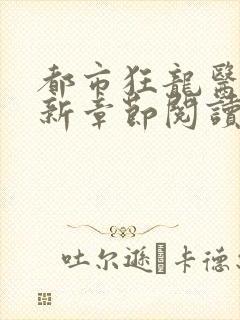 都市狂龍醫
新章節閱讀
吐尔逊 卡德